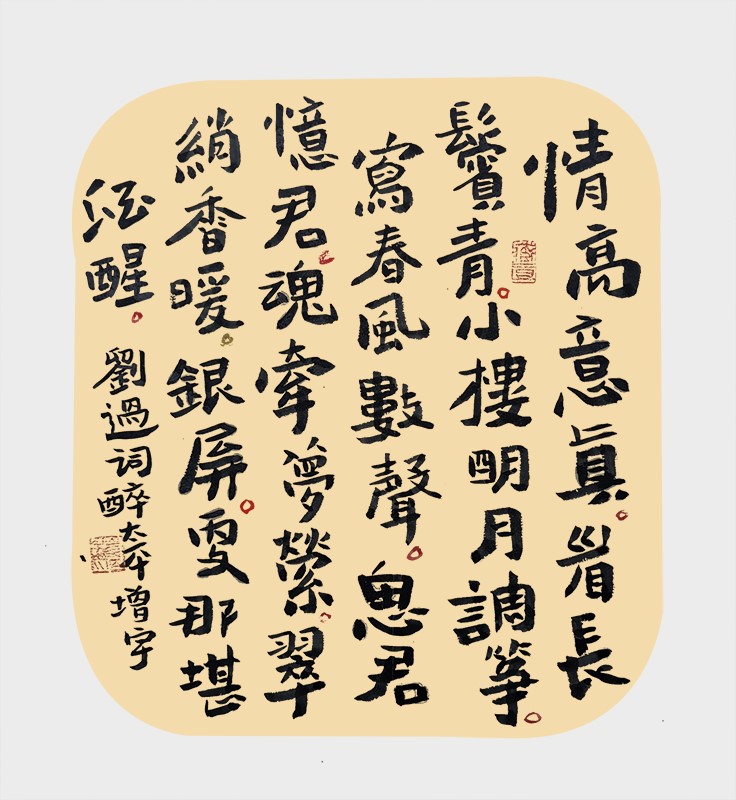 情高意眞。眉長
鬢青。小樓明月調箏。
寫春風數聲。思君
憶君。魂牽夢縈。翠
綃香暖。銀屏。更那堪
酒醒。劉過詞醉太平 增宇